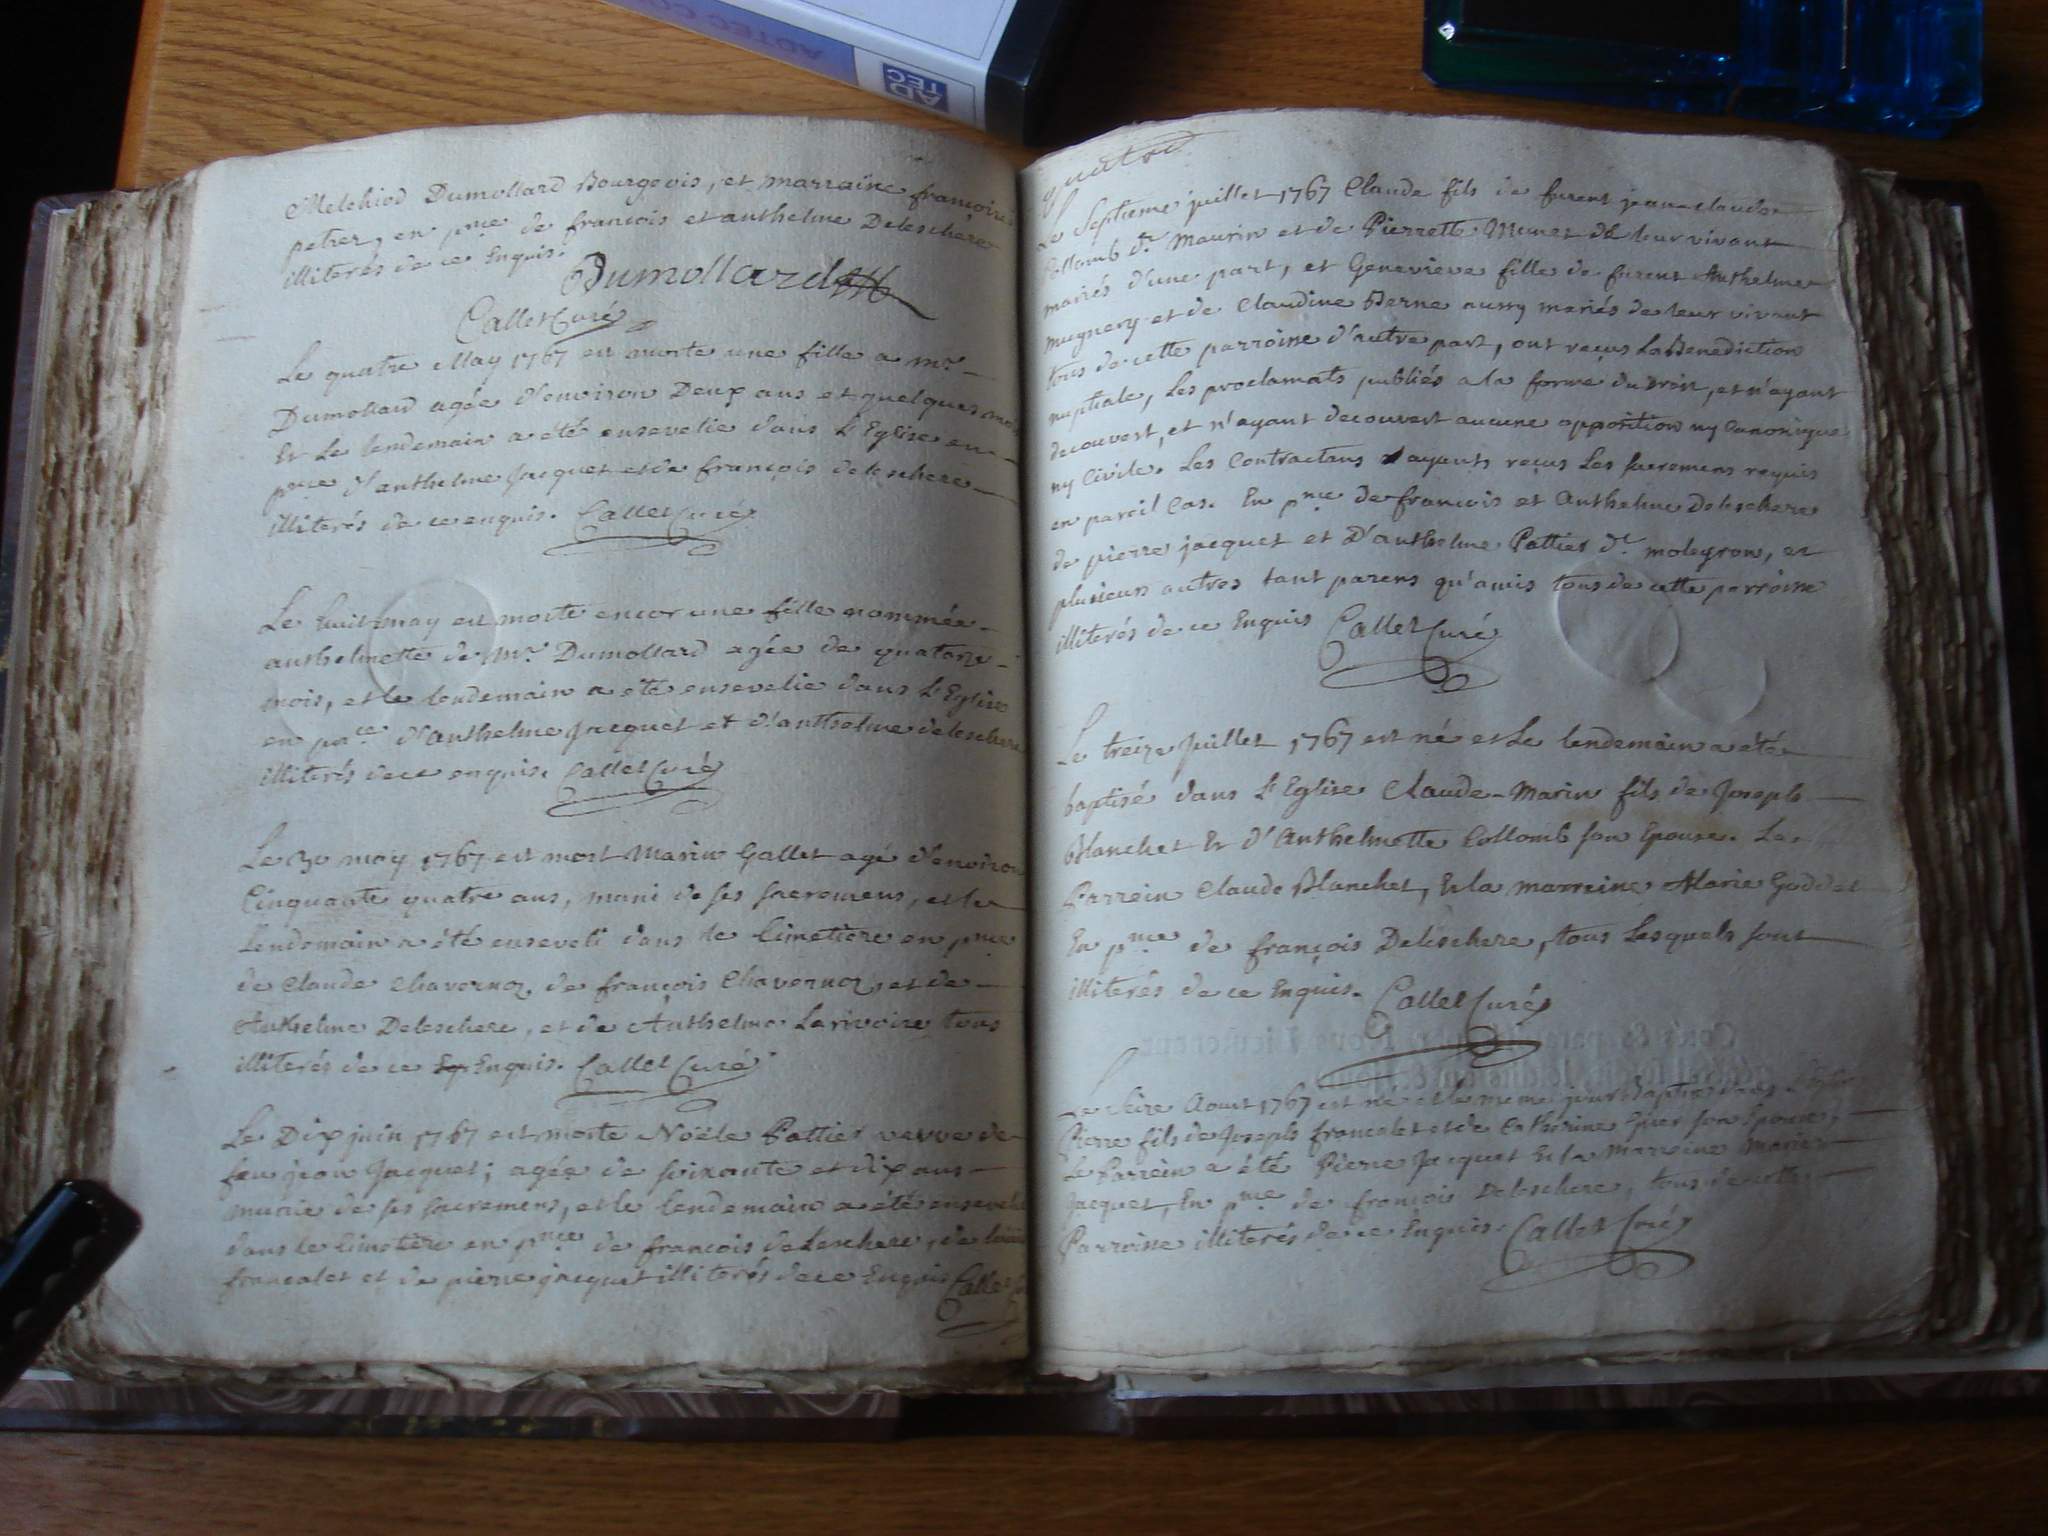 ADTEC CO
AD
TEC
Melchiod Dumollard Bourgeois, et marraine françoise
petrer, en pnce de françois et anthelme Deleschere
illiterés de ce Enquis.
Dumollard
Callet Curé
Le quatre May 1767 est morte une fille a mr
Dumollard agée d'environ Deux ans et quelques mois
Et Le lendemain a été ensevelie dans L'Eglise en
pnce d'anthelme Jacquet et de françois deleschere
illiterés de ce enquis. Callet Curé
Le huit may est morte encor une fille nommée
anthelmette de Mr Dumollard agée de quatorze
mois, et le lendemain a été ensevelie dans L'Eglise
en pnce d'anthelme Jacquet et d'anthelme deleschere
illiterés de ce enquis. Callet Curé
Le 30 may 1767 est mort Marin Gallet agé d'environ
Cinquante quatre ans, muni de ses sacremens, et le
Lendemain a été enseveli dans le Cimetiere en pnce
de Claude Chavornoz, de françois Chavornoz, et de
Anthelme Deleschere, et de Anthelme Larivoire tous
illiterés de ce Enquis. Callet Curé
Le Dix juin 1767 est morte Noële Pottier veuve de
feu jean Jacquet; agée de soixante et dix ans
munie de ses sacremens, et le lendemain a été ensevelie
dans le Cimetiere en pnce de françois deleschere, de
francalet et de pierre jacquet illiterés de ce Enquis Callet
quatre
Le Septieme juillet 1767 Claude fils de furent jean claude
Collomb dt Maurin et de Pierrette Munet de leur vivant
mariés d'une part, et Genevieve fille de furent Anthelme
Mugnery et de Claudine Berne aussy mariés de leur vivant
tous de cette parroisse d'autre part, ont reçus La Benediction
nuptiale, Les proclamats publiés a la forme du Droit, et n'ayant
decouvert, et n'ayant decouvert aucune opposition ny Canonique
ny Civile. Les Contractans ayants reçus Les sacremens requis
en pareil Cas. En pnce de françois et Anthelme Deleschere
de pierre jacquet et D'anthelme Pottier dt moleyron, et
plusieurs autres tant parens qu'amis tous de cette parroisse
illiterés de ce Enquis Callet Curé
Le treize Juillet 1767 est né et Le lendemain a été
baptisé dans L'Eglise Claude-Marin fils de Joseph
Blanchet Et d'Anthelmette Collomb son Epouse. Le
Parrein Claude Blanchet, Et la marreine Marie Goddet
En pnce de françois Deleschere, tous Lesquels sont
illiterés de ce Enquis. Callet Curé
Le Seize Aoust 1767 est né et le meme jour Baptisé dans L'Eglise
Pierre fils de Joseph francalet et de Catherine son Epouse,
Le Parrein a été Pierre Jacquet Et la Marreine Marie
Jacquet, En pnce de françois Deleschere, tous de cette
Parroisse illiterés de ce Enquis. Callet Curé